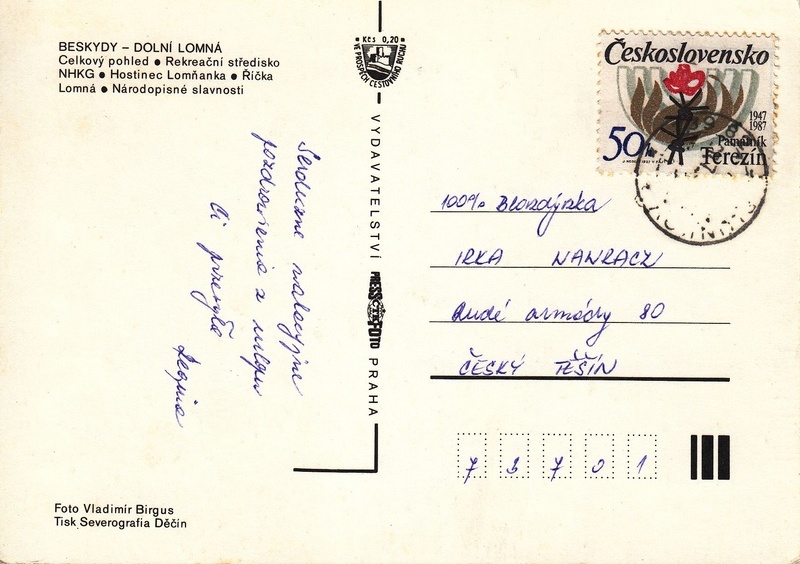 BESKYDY – DOLNÍ LOMNÁ
Celkový pohled ● Rekreační středisko
NHKG ● Hostinec Lomňanka ● Říčka
Lomná ● Národopisné slavnosti
Kčs 0,20
VE PROSPĚCH CESTOVNÍHO RUCHU
VYDAVATELSTVÍ
PRESSFOTO
PRAHA
Československo
1947
1987
Památník
Terezín
50h
Serdeczne wakacyjne
pozdrowienia z
Ci przesyła
100% Blondýnka
IRKA WAWRACZ
Rudé armády 80
ČESKÝ TĚŠÍN
7 3 7 0 1
Foto Vladimír Birgus
Tisk Severografia Děčín